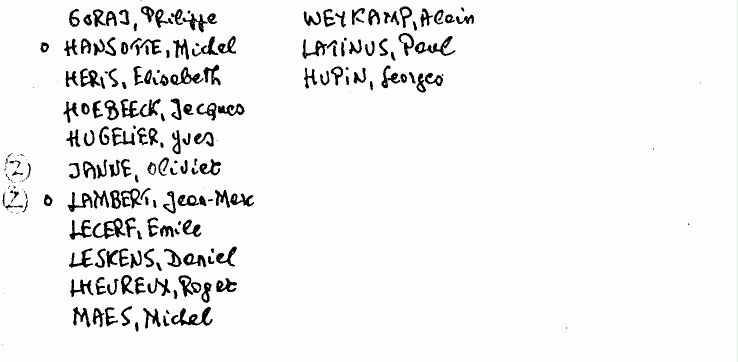 GORAJ, Philippe
o HANSOTTE, Michel
HERIS, Elisabeth
HOEBEECK, Jacques
HUGELIER, Yves
(2) JANNE, Olivier
(2) o LAMBERT, Jean-Marc
LECERF, Emile
LESKENS, Daniel
LHEUREUX, Roger
MAES, Michel
WEYKAMP, Alain
LATINUS, Paul
HUPIN, Georges